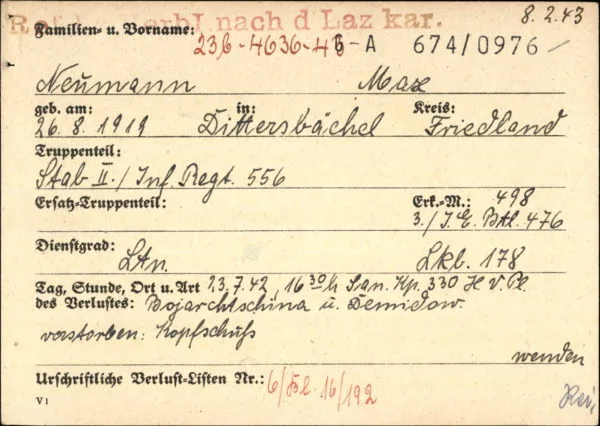 erbl. nach d Laz kar.
8.2.43
Familien- u. Vorname:
236-4636-46-A 674/0976/
Neumann Max
geb. am: in: Kreis:
26.8.1919 Dittersbächel Friedland
Truppenteil:
Stab II./Inf. Regt. 556
Ersatz-Truppenteil: Erk.-M.: 498
3./I.E. Btl. 476
Dienstgrad: Ltn. Lkb. 178
Tag, Stunde, Ort u. Art 23.7.42, 16 30 h San. Kp. 330 H.V.Pl.
des Verlustes: Bojarchtschina u. Demidow.
verstorben: Kopfschuß
wenden
Urschriftliche Verlust-Listen Nr.: 6/Bl. 16/192
V 1